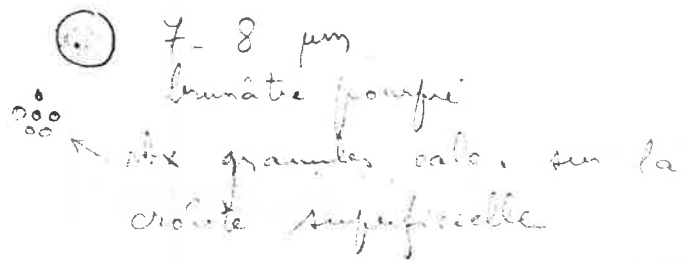 7-8 µm
brunâtre pourpré
nbx granules calc. sur la
croûte superficielle